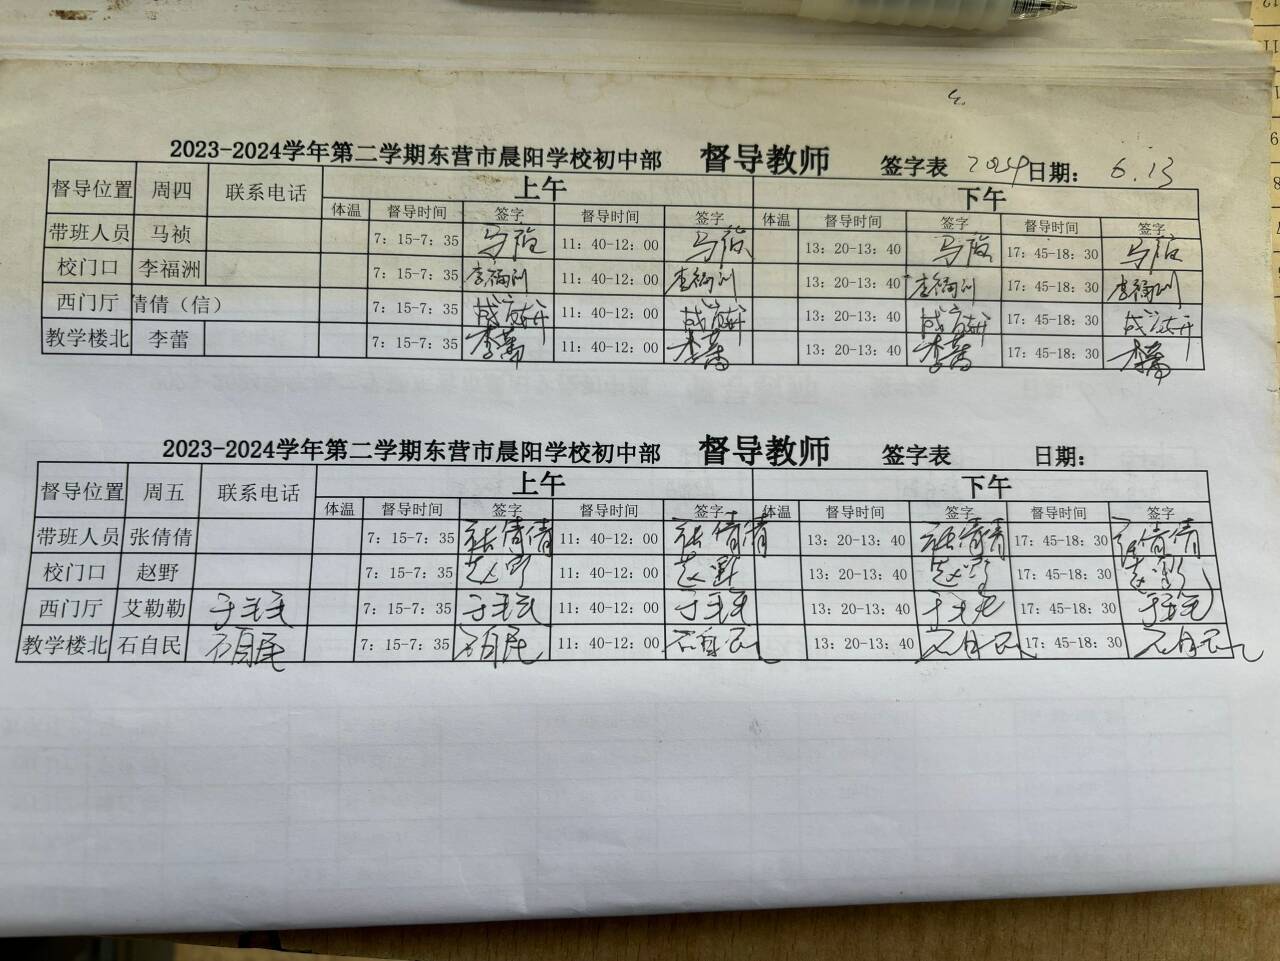 2023-2024学年第二学期东营市晨阳学校初中部 督导教师 签字表 2024日期： 6.13
督导位置 周四 联系电话 上午 下午
体温 督导时间 签字 督导时间 签字 体温 督导时间 签字 督导时间 签字
带班人员 马祯 7：15-7：35 马祯 11：40-12：00 马祯 13：20-13：40 马祯 17：45-18：30 马祯
校门口 李福洲 7：15-7：35 李福洲 11：40-12：00 李福洲 13：20-13：40 李福洲 17：45-18：30 李福洲
西门厅 倩倩（信） 7：15-7：35 11：40-12：00 13：20-13：40 17：45-18：30
教学楼北 李蕾 7：15-7：35 李蕾 11：40-12：00 李蕾 13：20-13：40 李蕾 17：45-18：30 李蕾
2023-2024学年第二学期东营市晨阳学校初中部 督导教师 签字表 日期：
督导位置 周五 联系电话 上午 下午
体温 督导时间 签字 督导时间 签字 体温 督导时间 签字 督导时间 签字
带班人员 张倩倩 7：15-7：35 张倩倩 11：40-12：00 张倩倩 13：20-13：40 张倩倩 17：45-18：30 张倩倩
校门口 赵野 7：15-7：35 赵野 11：40-12：00 赵野 13：20-13：40 赵野 17：45-18：30 赵野
西门厅 艾勒勒 7：15-7：35 11：40-12：00 13：20-13：40 17：45-18：30
教学楼北 石自民 石自民 7：15-7：35 石自民 11：40-12：00 石自民 13：20-13：40 石自民 17：45-18：30 石自民